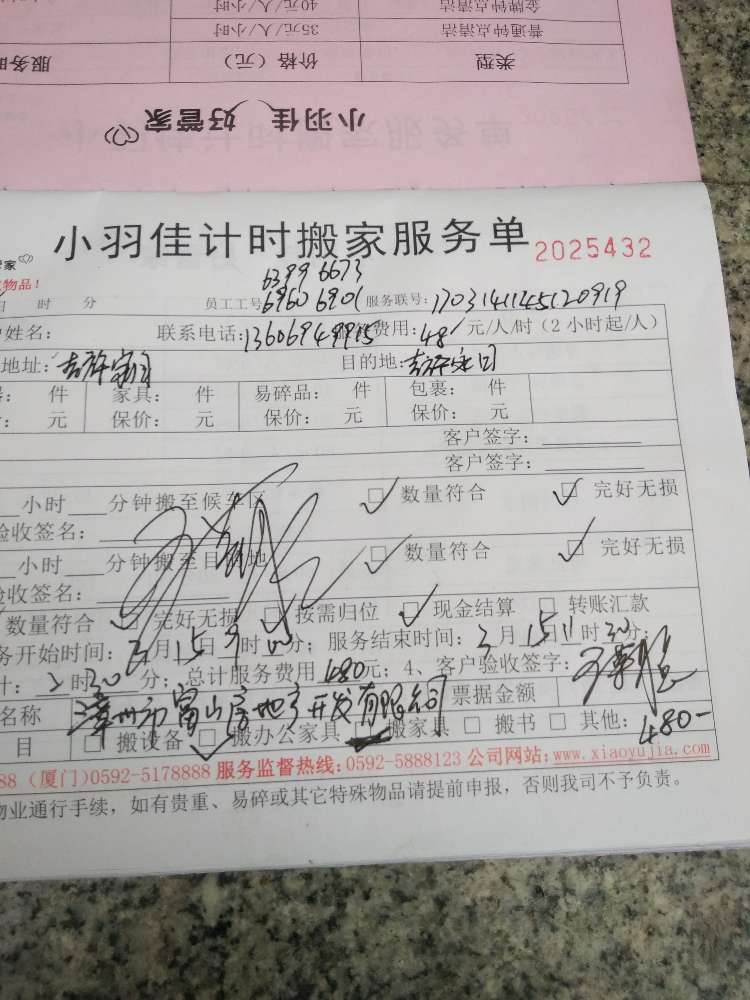 金牌钟点清洁 40元/人/小时
普通钟点清洁 35元/人/小时
类型 价格（元） 服务时
小羽佳 好管家
小羽佳计时搬家服务单 2025432
管家
物品！
6399 6673
时 分 员工工号 6960 6901 服务联号: 1703141145120919
户姓名: 联系电话: 13606949915 费用: 48 元/人/时（2 小时起/人）
地址: 目的地:
件 家具: 件 易碎品: 件 包裹: 件
元 保价: 元 保价: 元 保价: 元
客户签字:
客户签字:
小时 分钟搬至候车区 □ 数量符合 □ 完好无损
验收签名:
小时 分钟搬至目的地 □ 数量符合 □ 完好无损
验收签名:
数量符合 □ 完好无损 □ 按需归位 □ 现金结算 □ 转账汇款
务开始时间: 3月15日9时00分; 服务结束时间: 3月15日11时30分;
计: 2时30分; 总计服务费用480元; 4、客户验收签字:
名称 漳州市富山房地产开发有限公司 票据金额
目 □ 搬设备 □ 搬办公家具 搬家具 □ 搬书 □ 其他: 480-
88 (厦门)0592-5178888 服务监督热线: 0592-5888123 公司网站: www.xiaoyujia.com
物业通行手续，如有贵重、易碎或其它特殊物品请提前申报，否则我司不予负责。